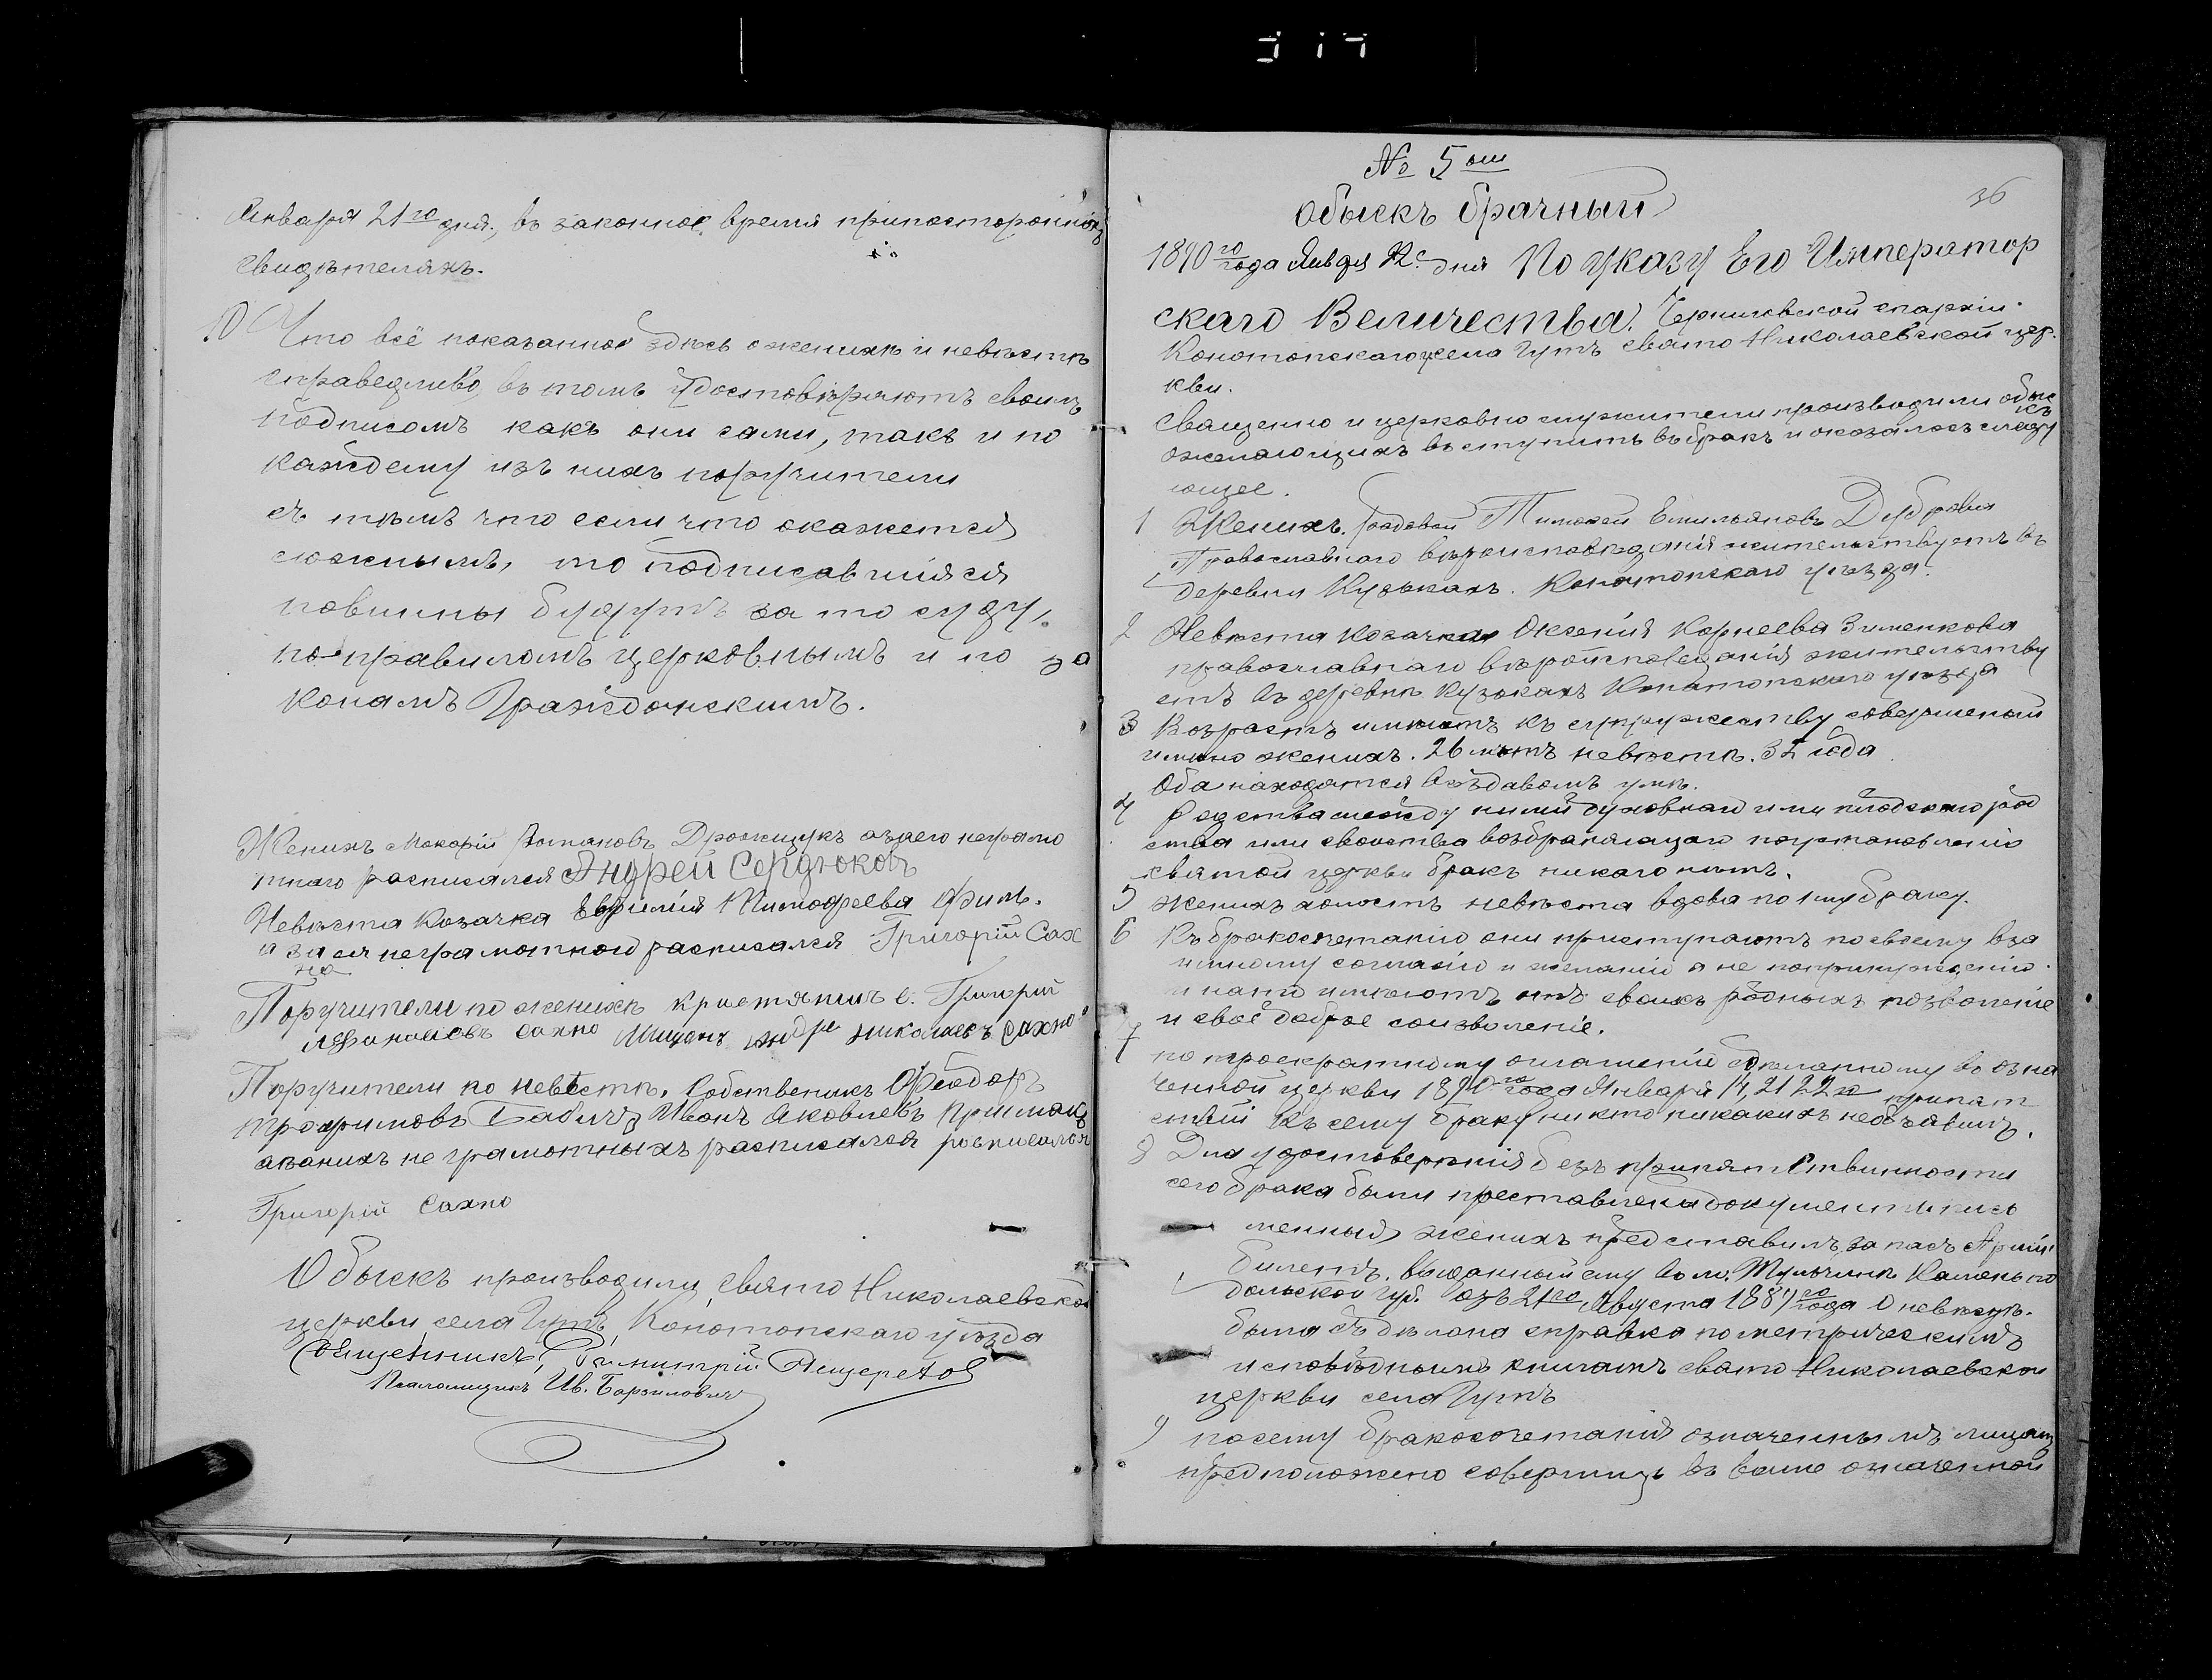 Января 21го дня, въ законное время припосторонихъ
свидѣтеляхъ.
10 Что всё показанное здѣсь о женихѣ и невѣстѣ
справедливо, въ томъ удостовѣряютъ своимъ
подписомъ какъ они сами, такъ и по
каждему изъ нихъ поручители
съ тѣмъ что если что окажется
ложнымъ, то подписавшійся
повинны будутъ за то суду,
по правиломъ церковнымъ и по за
конамъ Гражданскимъ.
Женихъ Макарій Дрожжукъ азаего неграмо
тнаго расписался Андрей Сердюковъ
Невѣста Козачка Евфимія Тимофеева Филь.
а за ея неграмотной расписался Григорій Сах
но
Поручители по женихѣ кристянинъ с. Григорій
Афанасіевъ Сахно Мищан Андре николаевъ Сахно
Поручители по невѣстѣ. Собственикъ Феодоръ
трофимовъ Бабичъ Иванъ Яковлевъ Примакъ
азанихъ не грамотныхъ расписался росписался
Григорій Сахно
Обыскъ производили Свято Николаевской
церкви села Гутъ, Конотопскаго уѣзда
Священникъ Димитрій
Псаломщикъ Ив. Барзиловичъ
№ 5ый
36
Обыскъ брачный
1890го года Января 22е дня По указу Его Император
скаго Величества. Черниговской епархіи
Конотопскаго села Гутъ свято Николаевской цер.
кви.
Священно и церковно служители производили обыс
къ
ожелающихъ вступить въ бракъ и оказалось слѣду
ющее.
1 Женихъ. рядовой Тимофей Емильяновъ Дубровка
Православнаго вѣроисповѣданія жительствуетъ въ
деревни Кузькахъ. Конотопскаго уѣзда.
2 Невѣста козачка Оксенія Корнеева Зименкова
православнаго вѣроисповеданія жительству
етъ въ деревнѣ Кузькахъ Конотопскаго уѣзда
3 Возрастъ имѣютъ къ супружеству совершеный
имено женихъ. 26 лѣтъ невѣста. 32 года
Оба находятся въ здавомъ умѣ.
4 Родства между ними духовнаго или плодскаго род
ства или своиства возбраняющаго поустановленію
святой церкви бракъ никаго нѣтъ.
5 женихъ холостъ невѣста вдова по 1му браку.
6 Къ бракосочетанію они приступаютъ посвоему вза
имному согласію и желанію а не попринужденію
и нато имѣютъ отъ своихъ родныхъ позволеніе
и своё доброе соизволеніе.
7 по троекратному оглашеніе сдѣланному во озна
ченной церкви 1890го года Января 14, 21 22го припят
ствій къ сему браку никто никакихъ необъявилъ.
8 Для удостоверенія безъ припятственности
сего брака были преставлены документы пись
менныя женихъ представилъ запасъ Арміи
билетъ. выданный ему въ м. Тульчинѣ Каменьпо
дольской губ. озъ 21го Августа 1889го года О невѣстѣ.
была сдѣлана справка по метрическимъ
исповѣднымъ книгамъ свято Николаевской
церкви села Гутъ
9 посему бракосочетанія означеннымъ лицамъ
предположено совершить въ выше означенной